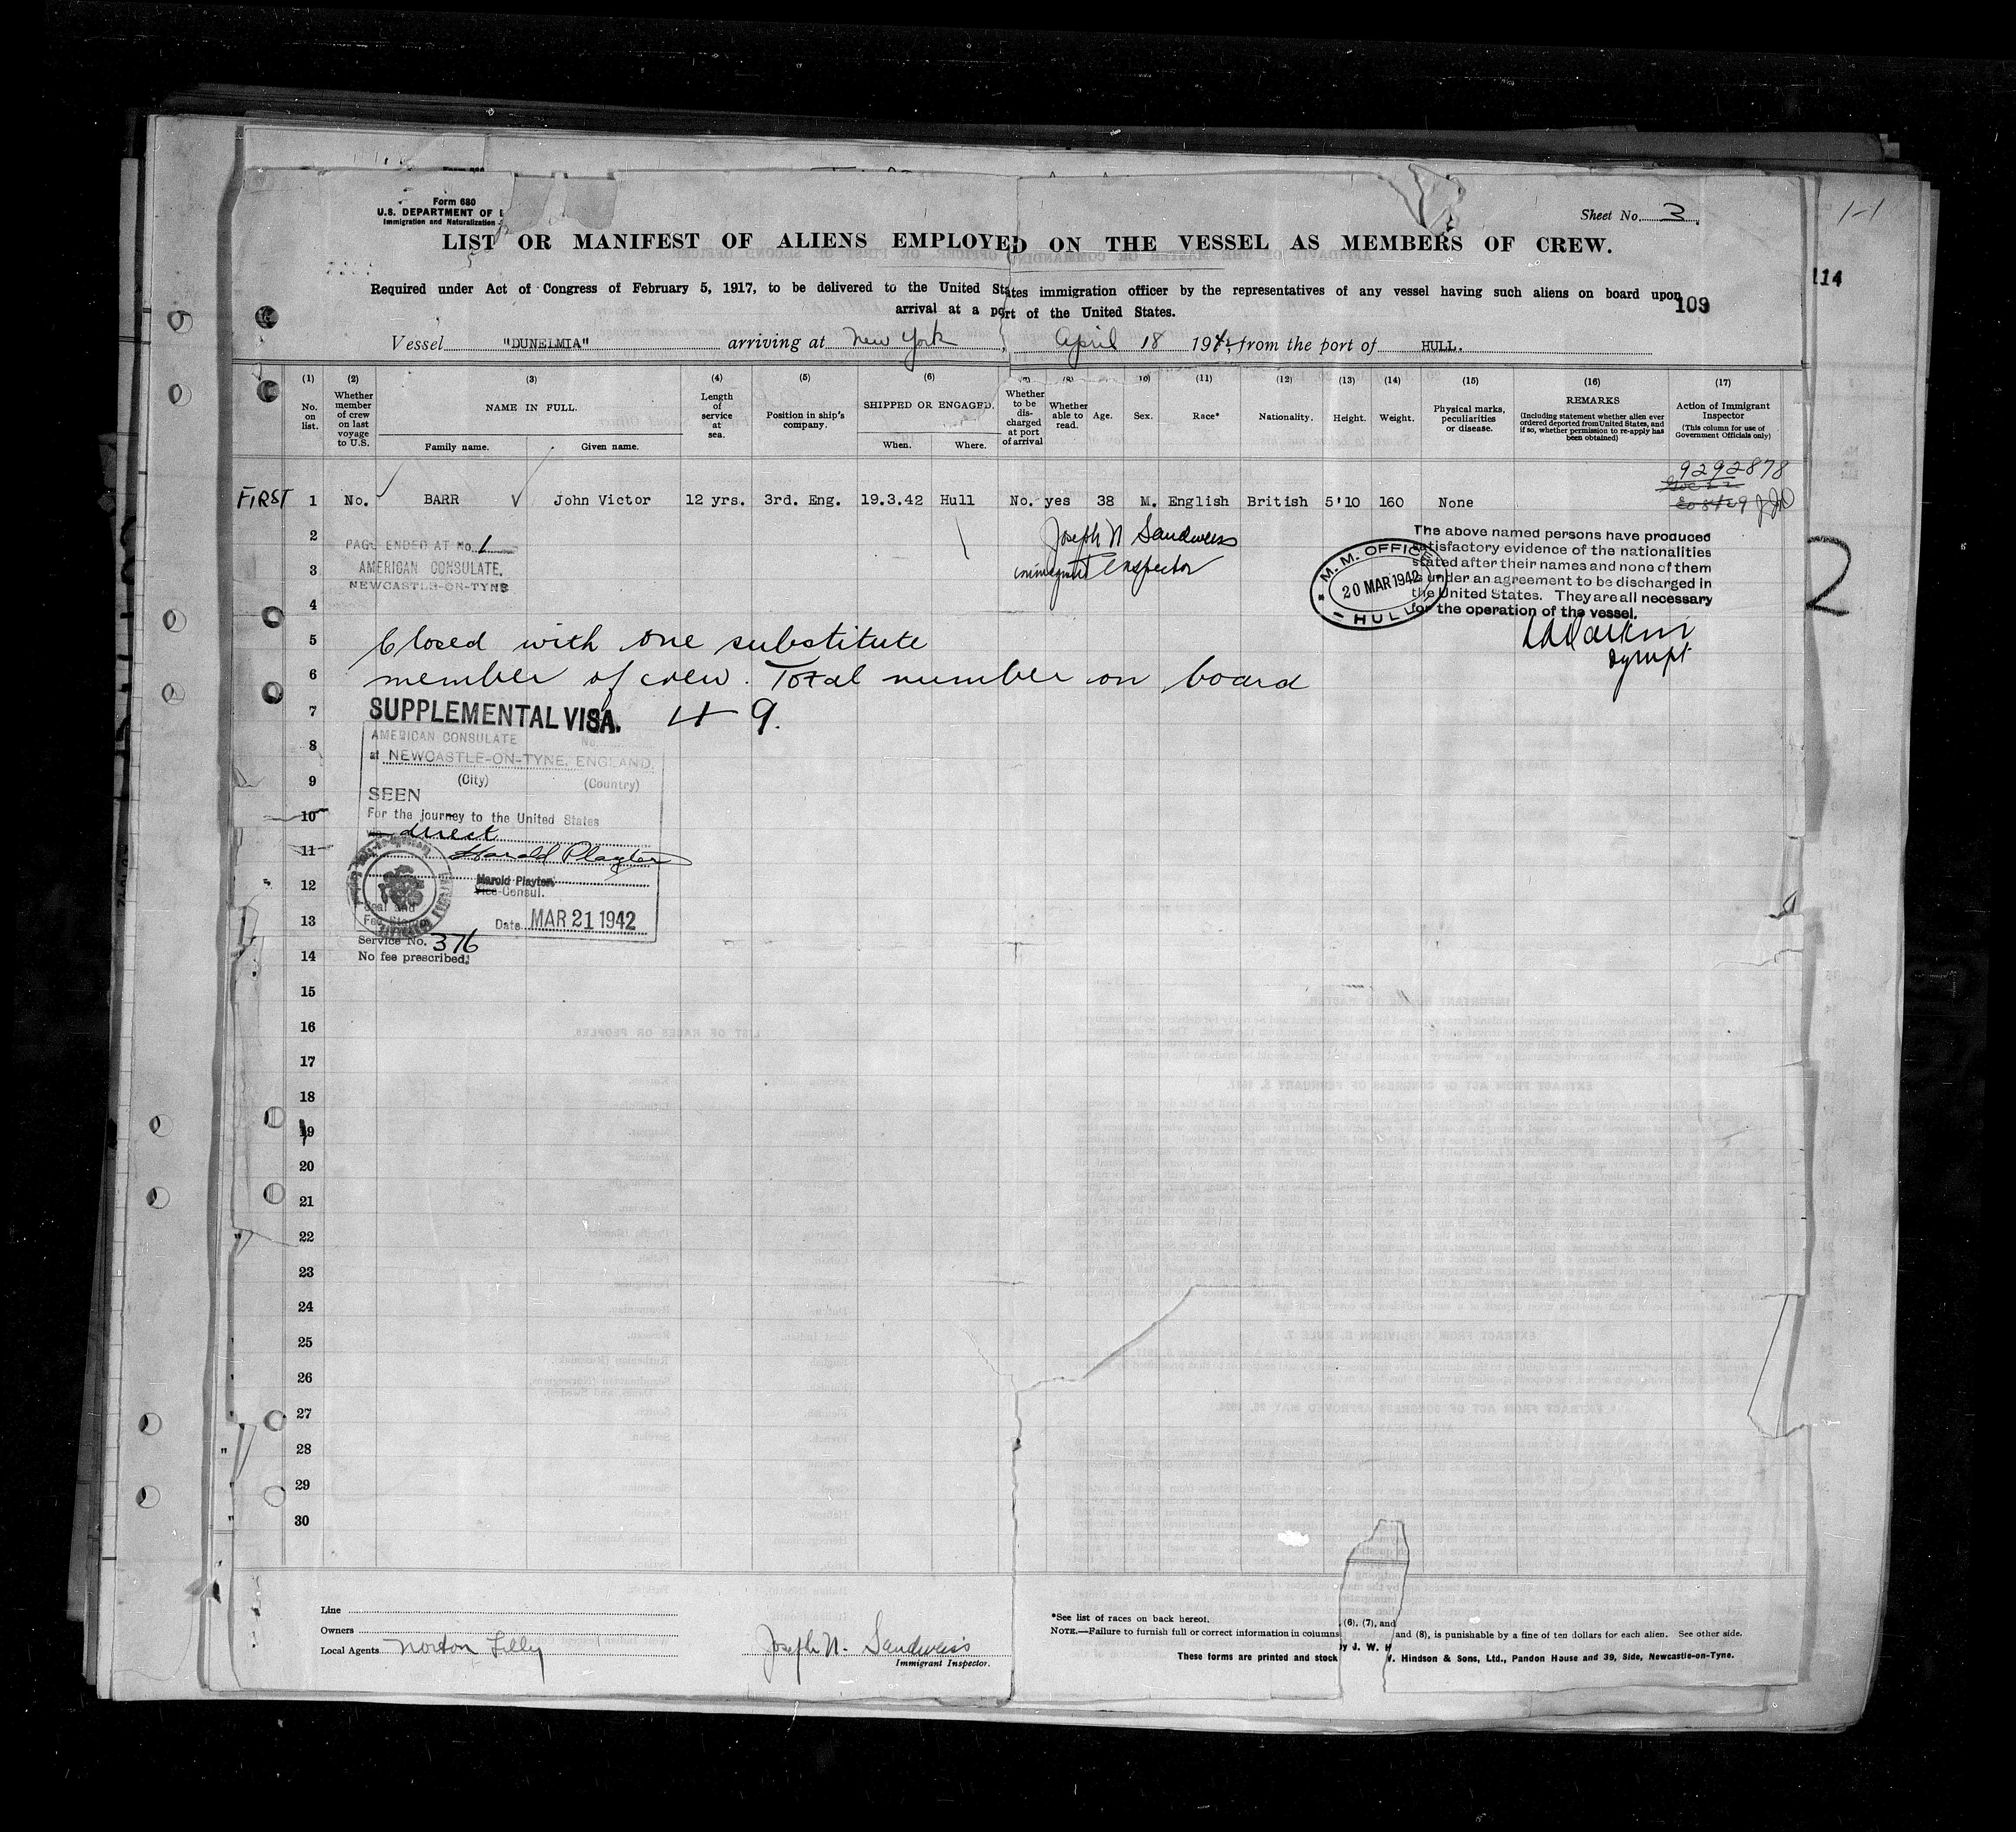 Form 680
U.S. DEPARTMENT OF
Immigration and Naturalization
Sheet No. 3
1-1
LIST OR MANIFEST OF ALIENS EMPLOYED ON THE VESSEL AS MEMBERS OF CREW.
114
Required under Act of Congress of February 5, 1917, to be delivered to the United States immigration officer by the representatives of any vessel having such aliens on board upon
109
arrival at a port of the United States.
Vessel "DUNELMIA" arriving at New York, April 18 1942, from the port of HULL.
(1) (2) (3) (4) (5) (6) (7) (8) (10) (11) (12) (13) (14) (15) (16) (17)
No. on list.
Whether member of crew on last voyage to U.S.
NAME IN FULL.
Family name. Given name.
Length of service at sea.
Position in ship's company.
SHIPPED OR ENGAGED.
When. Where.
Whether to be discharged at port of arrival
Whether able to read.
Age.
Sex.
Race*
Nationality.
Height.
Weight.
Physical marks, peculiarities or disease.
REMARKS
(Including statement whether alien ever ordered deported from United States, and if so, whether permission to re-apply has been obtained)
Action of Immigrant Inspector
(This column for use of Government Officials only)
9292878
FIRST 1 No. BARR John Victor 12 yrs. 3rd. Eng. 19.3.42 Hull No. yes 38 M. English British 5'10 160 None
2
3
4
5
6
7
8
9
10
11
12
13
14
15
16
17
18
19
20
21
22
23
24
25
26
27
28
29
30
PAGE ENDED AT No. 1
AMERICAN CONSULATE.
NEWCASTLE-ON-TYNE
Joseph N Sandweiss
immigrant Inspector
M. M. OFFICE
20 MAR 1942
HULL
The above named persons have produced
satisfactory evidence of the nationalities
stated after their names and none of them
is under an agreement to be discharged in
the United States. They are all necessary
for the operation of the vessel.
2
Closed with one substitute
member of crew. Total number on board
49.
SUPPLEMENTAL VISA.
AMERICAN CONSULATE No.
at NEWCASTLE-ON-TYNE, ENGLAND.
(City) (Country)
SEEN
For the journey to the United States
via direct
Harold Playter
Harold Playter
Vice-Consul.
Seal and
Fee Stamp
Date MAR 21 1942
Service No. 376
No fee prescribed.
Line
Owners
Local Agents Norton Lilly
Joseph N. Sandweiss
Immigrant Inspector.
*See list of races on back hereof.
NOTE.—Failure to furnish full or correct information in columns (6), (7), and
and (8), is punishable by a fine of ten dollars for each alien. See other side.
by J. W. H
These forms are printed and stock
W. Hindson & Sons, Ltd., Pandon House and 39, Side, Newcastle-on-Tyne.